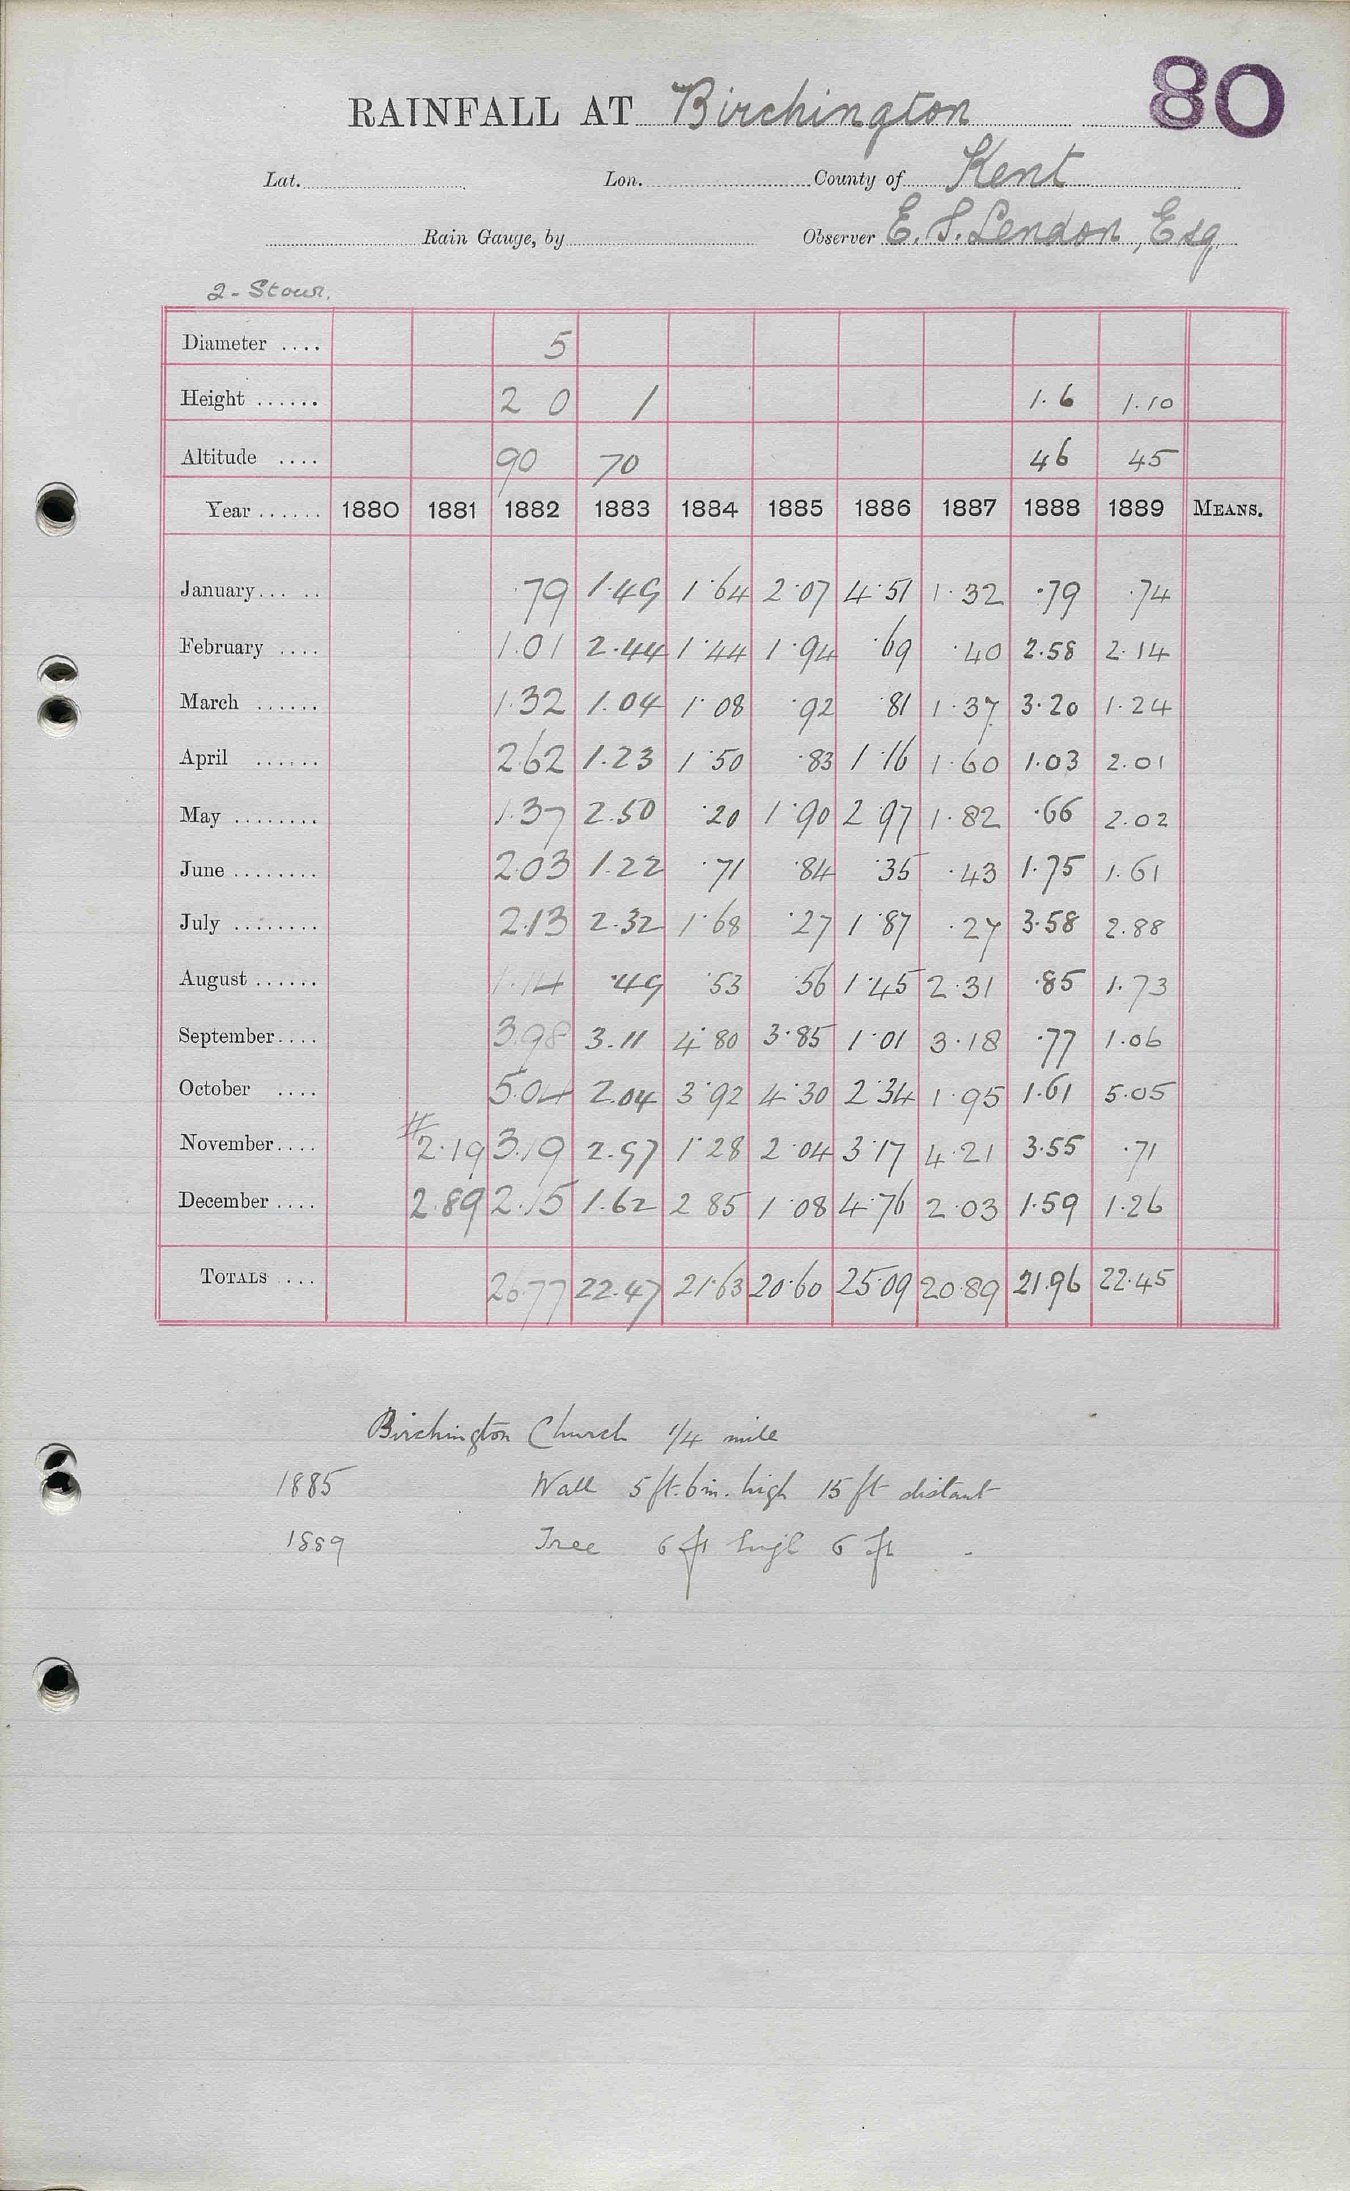 80
RAINFALL AT Birchington
Lat. Lon. County of Kent
Rain Gauge, by Observer E. S. Lendon, Esq
2 - Stour.
Diameter .... 5
Height ...... 2 0 1 1.6 1.10
Altitude .... 90 70 46 45
Year ...... 1880 1881 1882 1883 1884 1885 1886 1887 1888 1889 MEANS.
January... .. .79 1.49 1.64 2.07 4.51 1.32 .79 .74
February .... 1.01 2.44 1.44 1.94 .69 .40 2.58 2.14
March ...... 1.32 1.04 1.08 .92 .81 1.37 3.20 1.24
April ...... 2.62 1.23 1.50 .83 1.16 1.60 1.03 2.01
May ........ 1.37 2.50 .20 1.90 2.97 1.82 .66 2.02
June ........ 2.03 1.22 .71 .84 .35 .43 1.75 1.61
July ........ 2.13 2.32 1.68 .27 1.87 .27 3.58 2.88
August ...... 1.14 .49 .53 .56 1.45 2.31 .85 1.73
September.... 3.98 3.11 4.80 3.85 1.01 3.18 .77 1.06
October .... 5.04 2.04 3.92 4.30 2.34 1.95 1.61 5.05
November.... # 2.19 3.19 2.97 1.28 2.04 3.17 4.21 3.55 .71
December .... 2.89 2.15 1.62 2.85 1.08 4.76 2.03 1.59 1.26
TOTALS .... 26.77 22.47 21.63 20.60 25.09 20.89 21.96 22.45
Birchington Church 1/4 mile
1885 Wall 5 ft. 6 in. high 15 ft distant
1889 Tree 6 ft high 6 ft -